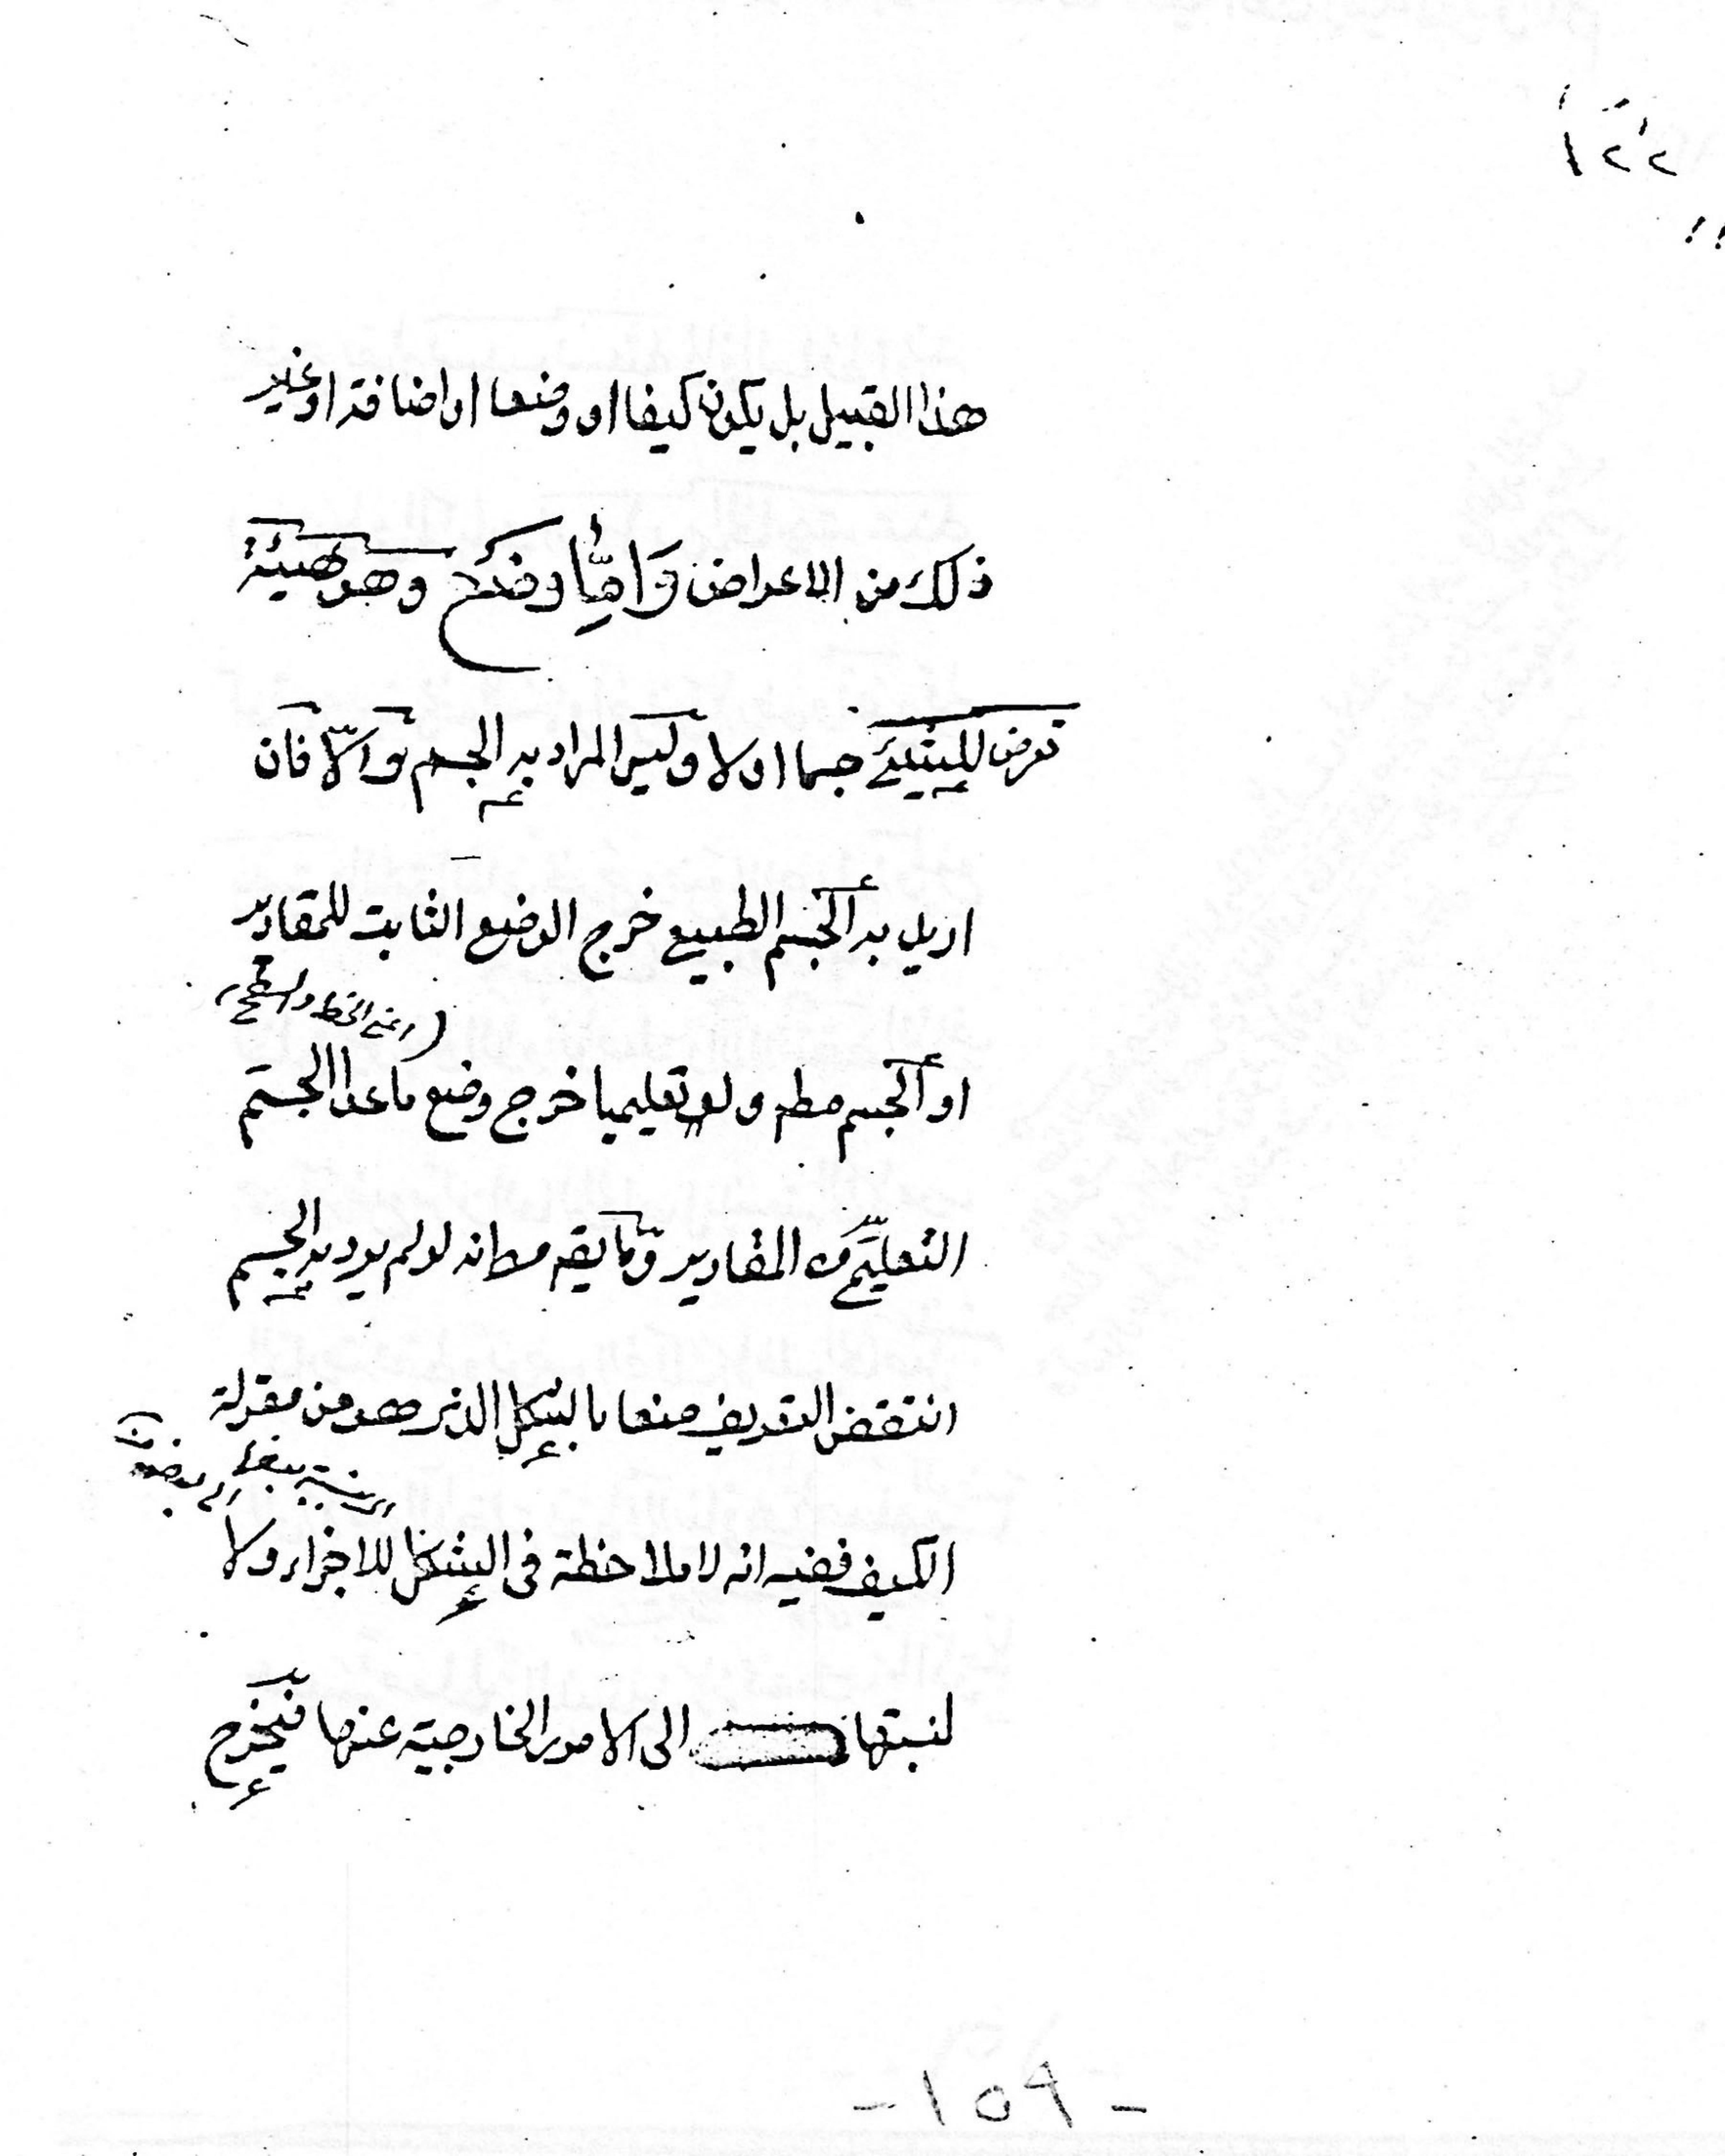 ١٢٢
هذا القبيل بل يكون كيفا او وضعا او اضافة او غير
ذلك من الاعراض وَامَّا وضع وهو هيئة
تعرض للشيئ جسما اولا وليس المراد به الجسم والّا فان
اريد به الجسم الطبيعي خرج الوضع الثابت للمقادير
او الجسم مطه ولو تعليميا خرج وضع ما عدا الجسم
(اعني الخط والسطح)
التعليمي من المقادير وما يقه من انه لو لم يرد به الجسم
انتقض التعريف منعا بالشكل الذي هو من مقولة
الكيف ففيه انه لا ملاحظة في الشكل للاجزاء ولا
لنسبتها الى الامور الخارجية عنها فيخرج
- ١٥٩ -